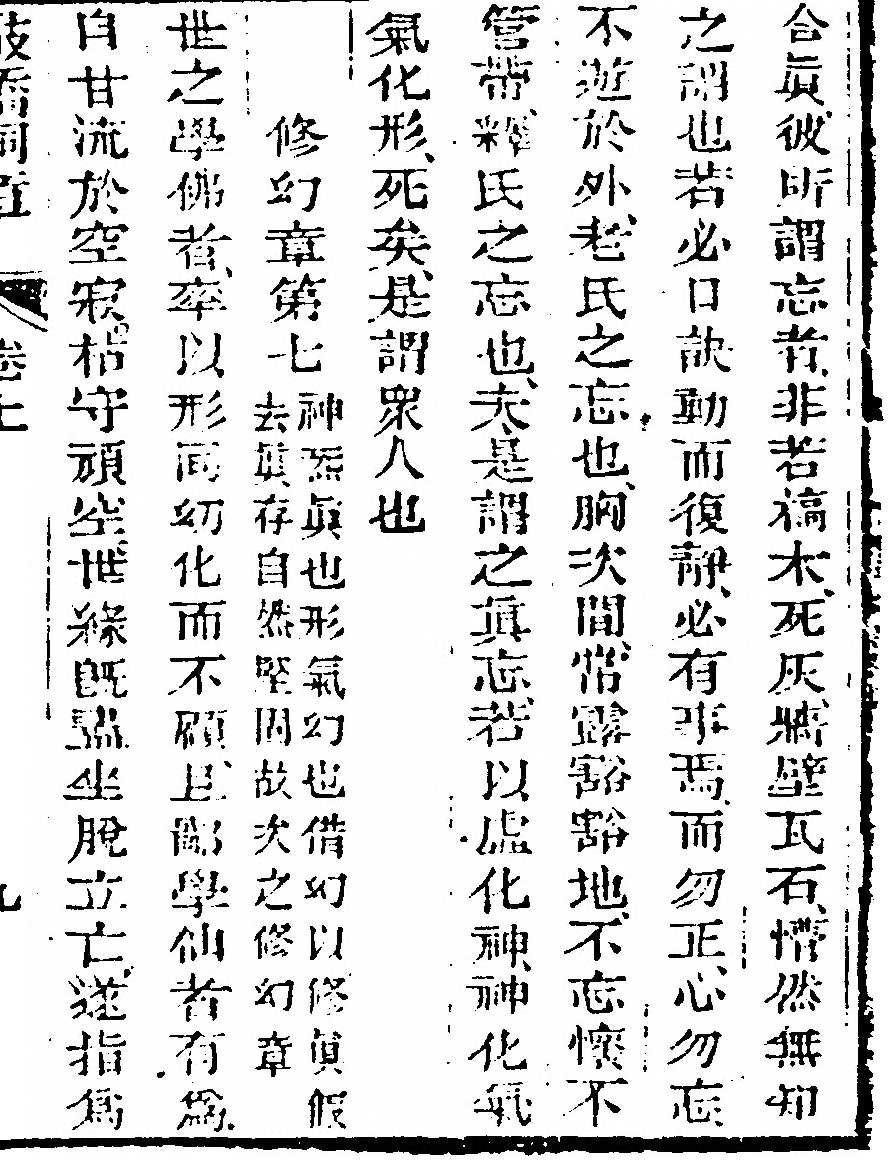 合眞彼所謂忘者非若槁木死灰牆壁瓦石懵然無知
之謂也若必口訣動而復靜必有事焉而勿正心勿忘
不遊於外老氏之忘也胸次間悄露豁豁地不忘懷不
管帶釋氏之忘也夫是謂之眞忘若以虛化神神化氣
氣化形死矣是謂衆人也
修幻章第七
神炁眞也形氣幻也借幻以修眞假
去眞存自然堅固故次之修幻章
世之學佛者率以形同幻化而不顧且鄙學仙者有爲
自甘流於空寂枯守頑空世緣旣盡坐脫立亡遂指爲
卷上
九